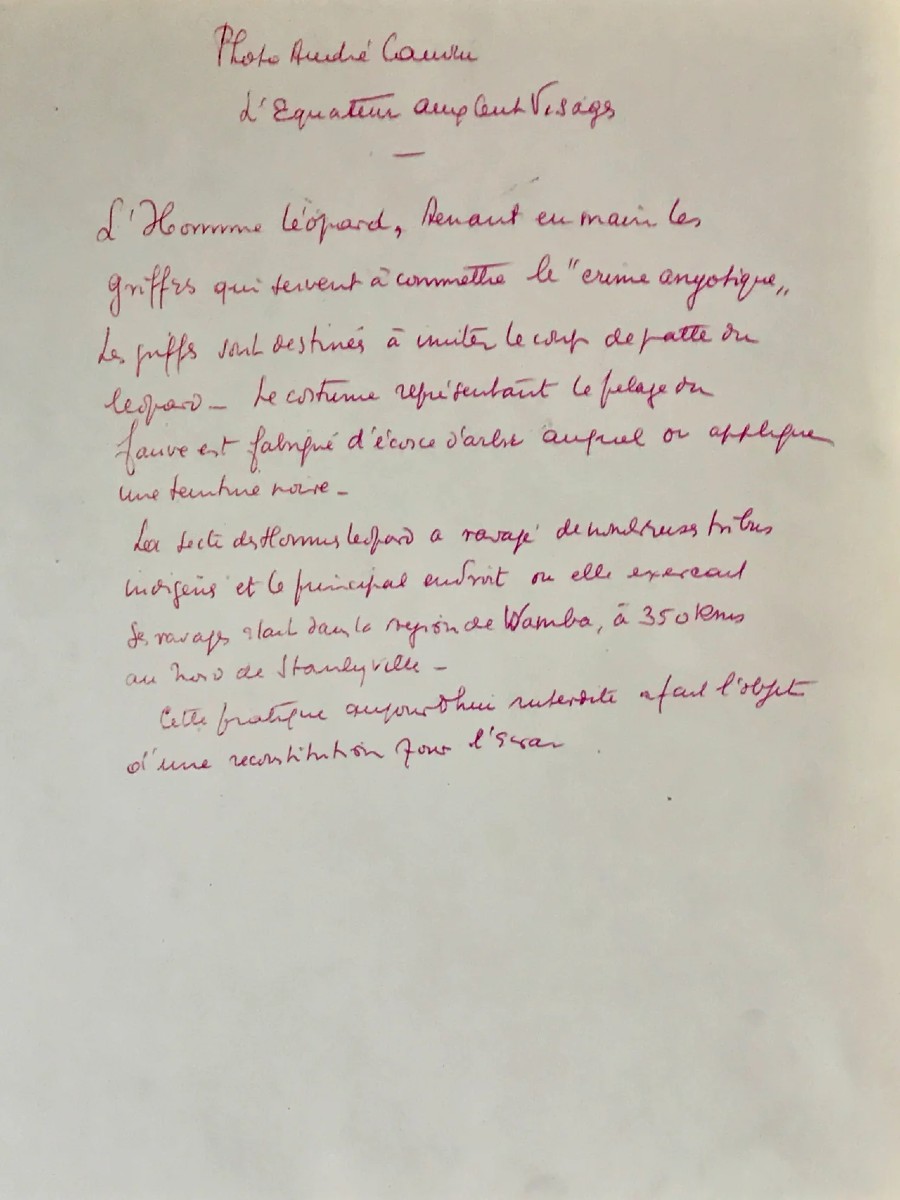 Photo André Cauvin
L'Equateur aux Cent Visages
—
L'Homme léopard, tenant en main les
griffes qui servent à commettre le "crime anyotique"
Les griffes sont destinés à imiter le coup de patte du
leopard — Le costume représentant le pelage du
fauve est fabriqué d'écorce d'arbre auquel on applique
une teinture noire —
La secte des Hommes leopard a ravagé de nombreuses tribus
indigènes et le principal endroit ou elle exercait
ses ravages était dans la région de Wamba, à 350 kms
au Nord de Stanleyville —
Cette pratique aujourd'hui interdite a fait l'objet
d'une reconstitution pour l'écran